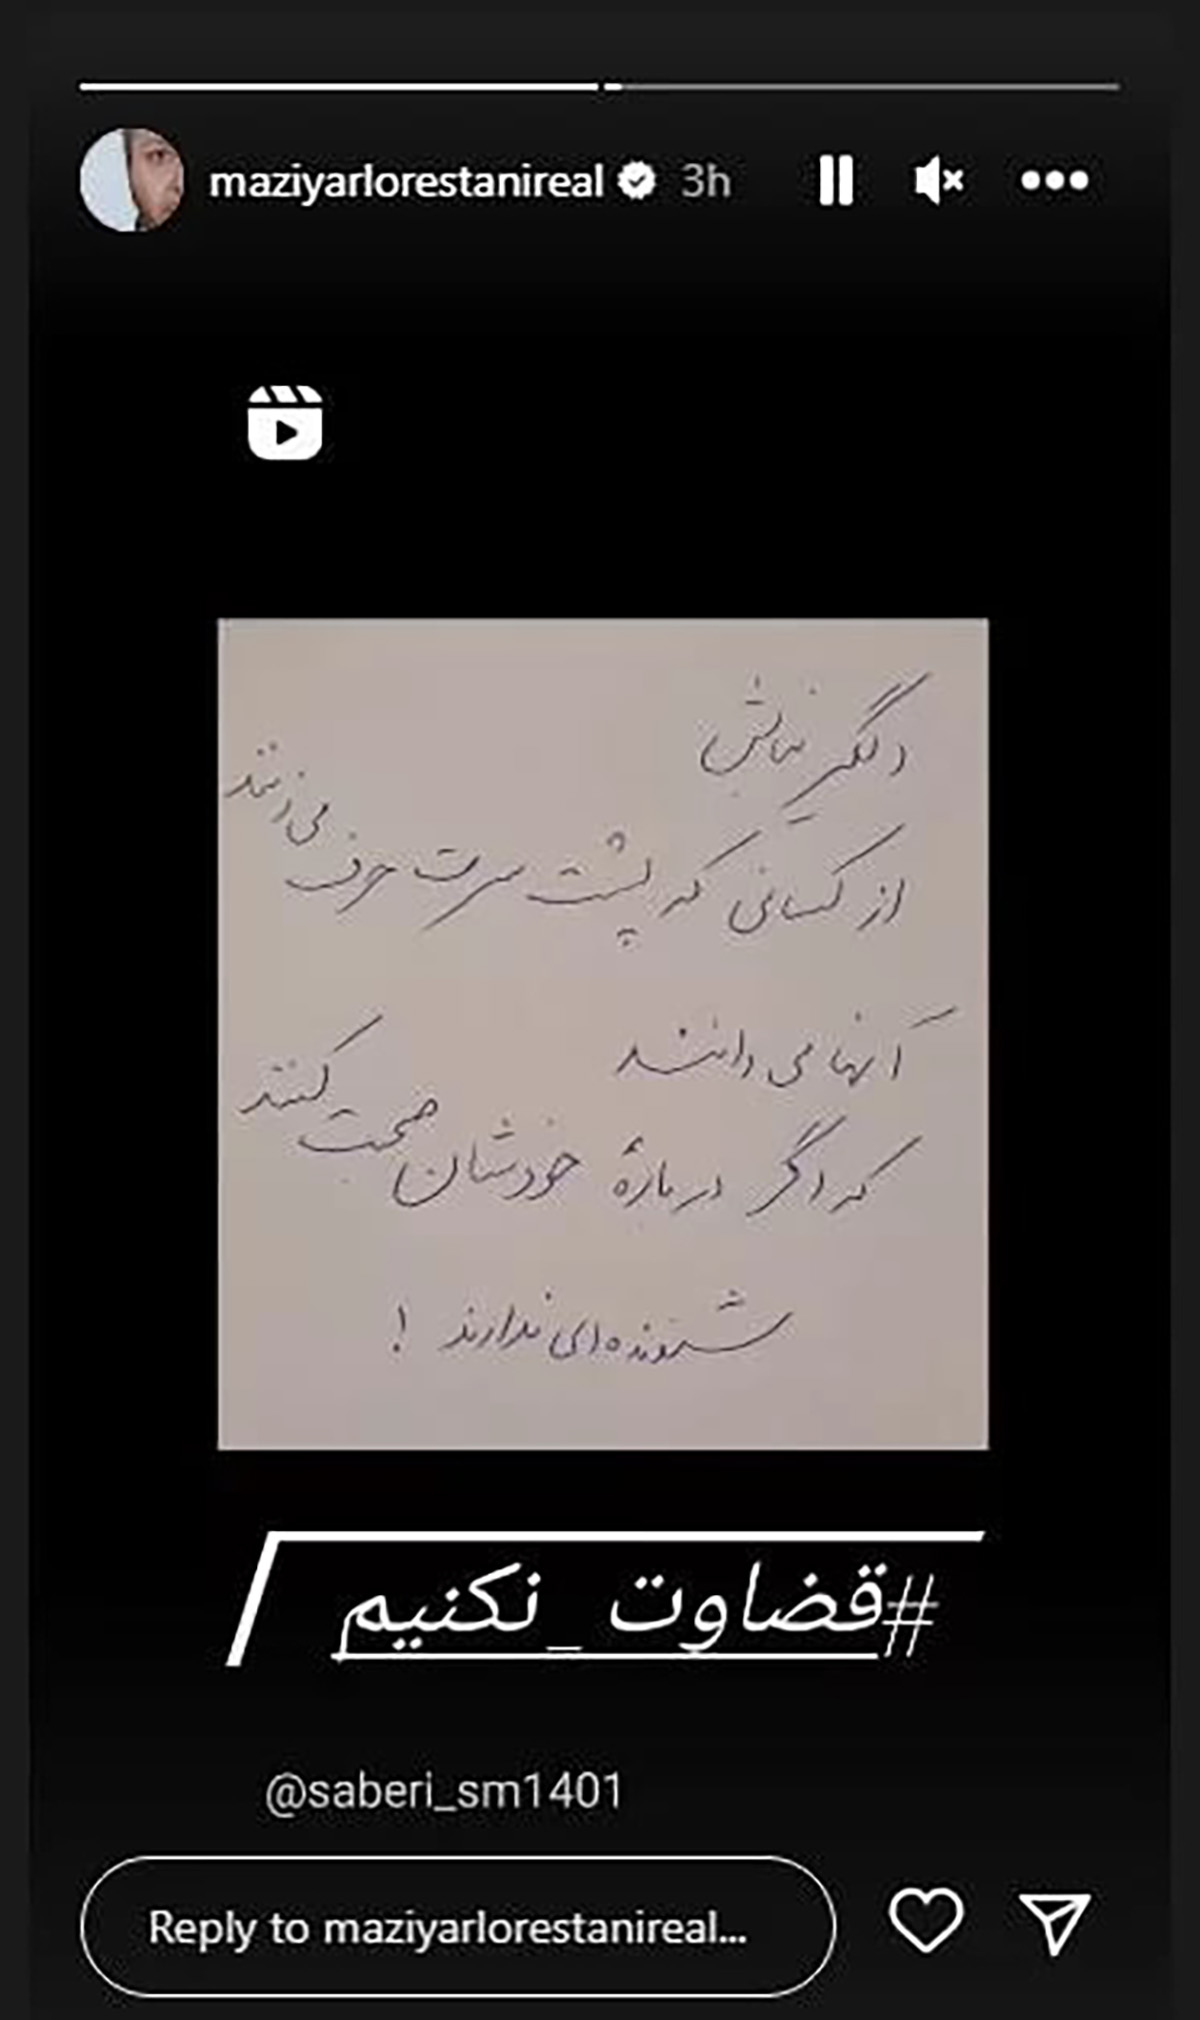 maziyarlorestanireal 3h
دلگیر نباش
از کسانی که پشت سرت حرف می‌زنند
آنها می‌دانند
که اگر دربارهٔ خودشان صحبت کنند
شنونده‌ای ندارند !
#قضاوت_نکنیم
@saberi_sm1401
Reply to maziyarlorestanireal...